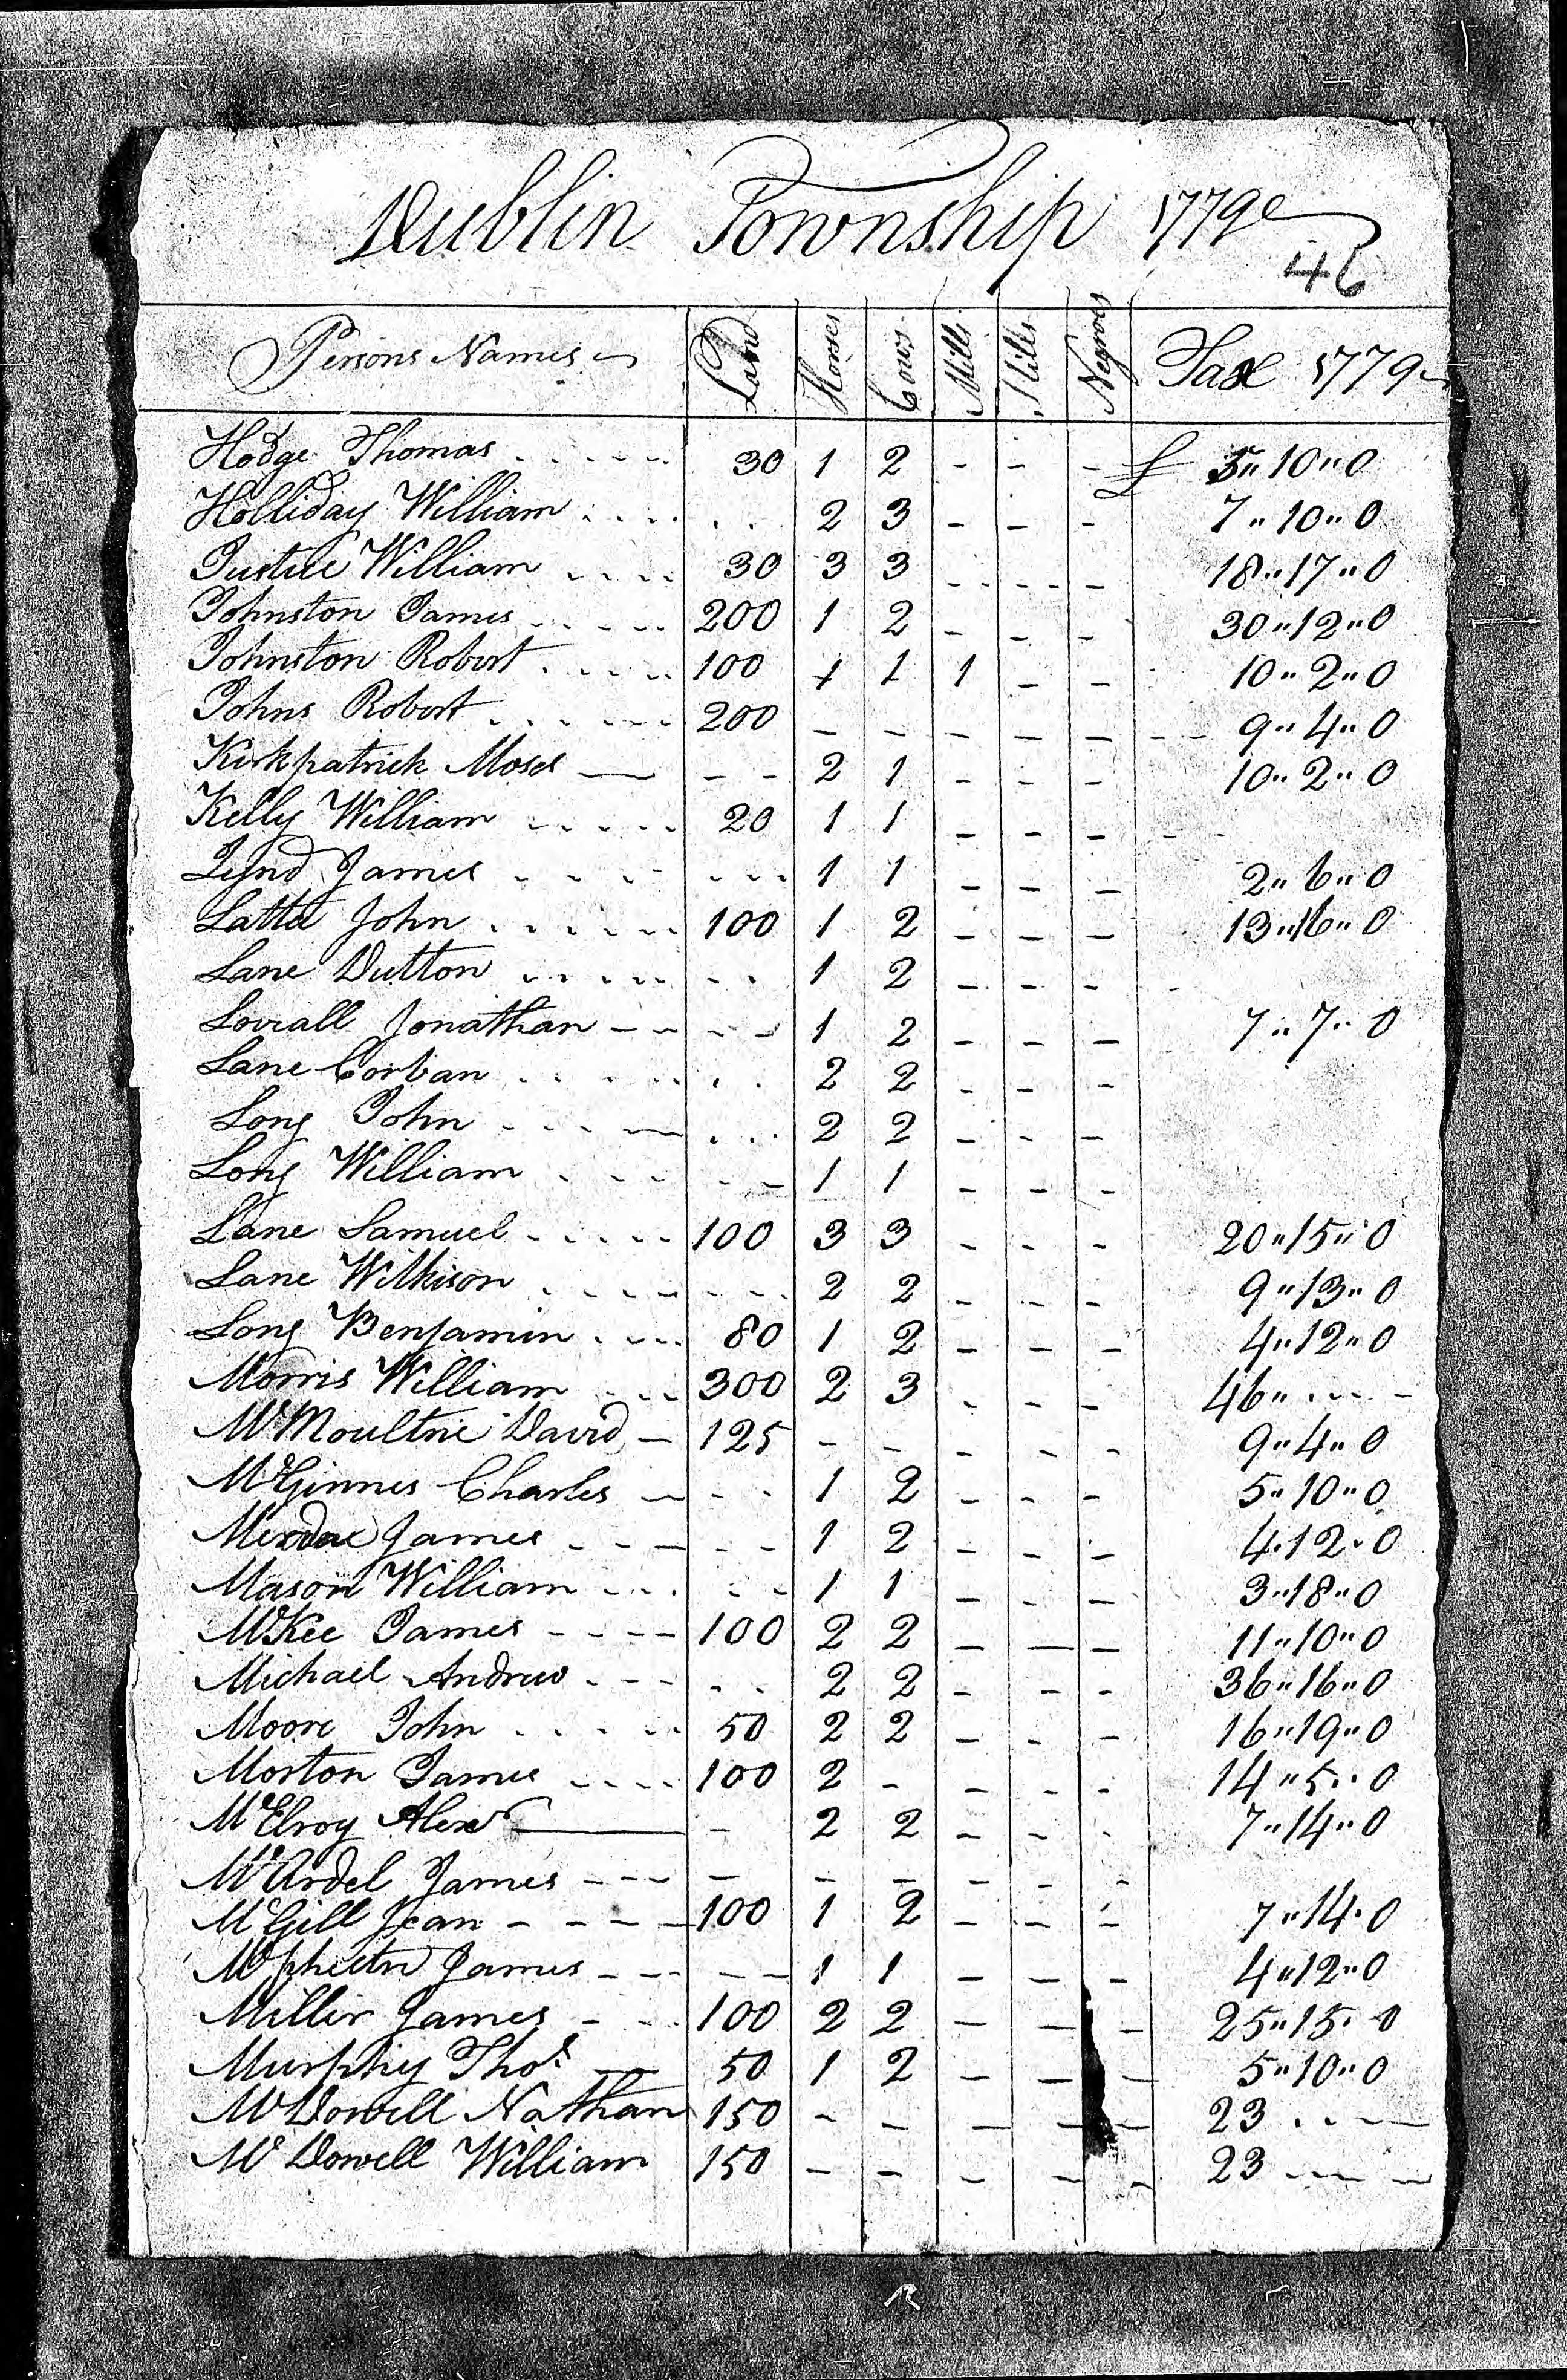 Dublin Township 1779
46
Persons Names Land Horses Cows Mills Stills Negroes Tax 1779
Hodge Thomas 30 1 2 - - - £ 5 " 10 " 0
Holliday William 2 3 - - - 7 " 10 " 0
Justice William 30 3 3 - - - 18 " 17 " 0
Johnston James 200 1 2 - - - 30 " 12 " 0
Johnston Robert 100 1 1 1 - - 10 " 2 " 0
Johns Robert 200 - - - - - 9 " 4 " 0
Kirkpatrick Moses - - 2 1 - - - 10 " 2 " 0
Kelly William 20 1 1 - - -
Lynd James 1 1 - - - 2 " 6 " 0
Latta John 100 1 2 - - - 13 " 16 " 0
Lane Dutton 1 2 - - -
Loveall Jonathan 1 2 - - - 7 " 7 " 0
Lane Corban 2 2 - - -
Long John 2 2 - - -
Long William 1 1 - - -
Lane Samuel 100 3 3 - - - 20 " 15 " 0
Lane Wilkison 2 2 - - - 9 " 13 " 0
Long Benjamin 80 1 2 - - - 4 " 12 " 0
Morris William 300 2 3 - - - 46 "
McMoultrie David 125 - - - - - 9 " 4 " 0
McGinnes Charles 1 2 - - - 5 " 10 " 0
James 1 2 - - - 4 . 12 . 0
Mason William 1 1 - - - 3 " 18 " 0
McKee James 100 2 2 - - - 11 " 10 " 0
Michael Andrew 2 2 - - - 36 " 16 " 0
Moore John 50 2 2 - - - 16 " 19 " 0
Morton James 100 2 - - - - 14 " 5 " 0
McElroy Alexr - 2 2 - - - 7 " 14 " 0
McArdel James - - - - - -
McGill Jean 100 1 2 - - - 7 " 14 . 0
James 1 1 - - - 4 " 12 " 0
Miller James 100 2 2 - - - 25 " 15 . 0
Murphy Thos. 50 1 2 - - - 5 " 10 " 0
McDowell Nathan 150 - - - - - 23
McDowell William 150 - - - - - 23